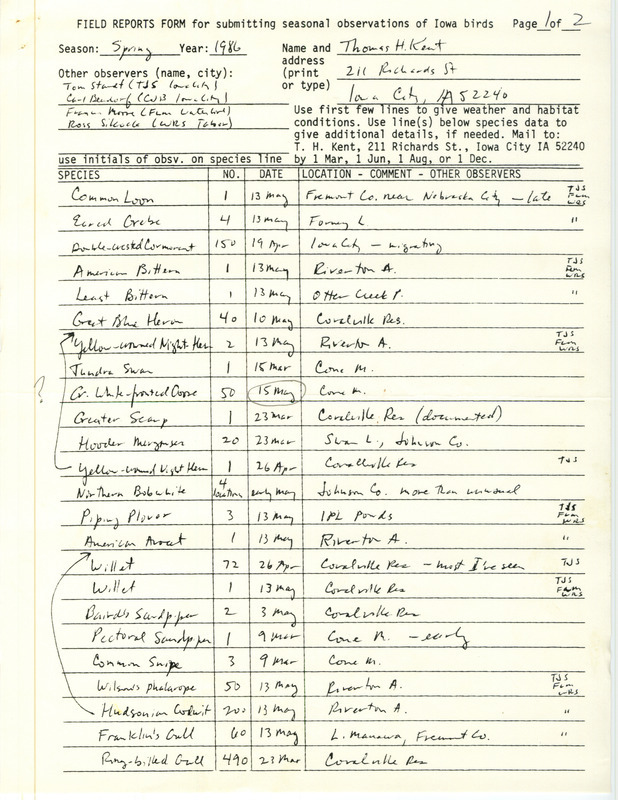 FIELD REPORTS FORM for submitting seasonal observations of Iowa birds Page 1 of 2
Season: Spring Year: 1986
Name and address (print or type) Thomas H. Kent
211 Richards St
Iowa City, IA 52240
Other observers (name, city):
Tom Staudt (TJS Iowa City)
Carl Bendorf (CJB Iowa City)
Francis Moore (FLM Waterloo)
Ross Silcock (WRS Tabor)
use initials of obsv. on species line
Use first few lines to give weather and habitat
conditions. Use line(s) below species data to
give additional details, if needed. Mail to:
T. H. Kent, 211 Richards St., Iowa City IA 52240
by 1 Mar, 1 Jun, 1 Aug, or 1 Dec.
SPECIES NO. DATE LOCATION - COMMENT - OTHER OBSERVERS
Common Loon 1 13 May Fremont Co. near Nebraska City - late TJS FLM WRS
Eared Grebe 4 13 May Forney L "
Double-crested Cormorant 150 19 Apr Iowa City - migrating
American Bittern 1 13 May Riverton A. TJS FLM WRS
Least Bittern 1 13 May Otter Creek P. "
Great Blue Heron 40 10 May Coralville Res.
Yellow-crowned Night Her 2 13 May Riverton A. TJS FLM WRS
Tundra Swan 1 15 Mar Cone M.
? Gr. White-fronted Goose 50 15 May Cone M.
Greater Scaup 1 23 Mar Coralville Res (documented)
Hooded Merganser 20 23 Mar Swan L, Johnson Co.
Yellow-crowned Night Hern 1 26 Apr Corallville Res TJS
Northern Bobwhite 4 locations early May Johnson Co. more than unusual
Piping Plover 3 13 May IPL Ponds TJS FLM WRS
American Avocet 1 13 May Riverton A. "
Willet 72 26 Apr Coralville Res - most I've seen TJS
Willet 1 13 May Coralville Res TJS FLM WRS
Baird's Sandpiper 2 3 May Coralville Res
Pectoral Sandpiper 1 9 Mar Cone M. - early
Common Snipe 3 9 Mar Cone M.
Wilson's Phalarope 50 13 May Riverton A. TJS FLM WRS
Hudsonian Godwit 200 13 May Riverton A. "
Franklin's Gull 60 13 May L. Manawa, Fremont Co. "
Ring-billed Gull 490 23 Mar Coralville Res